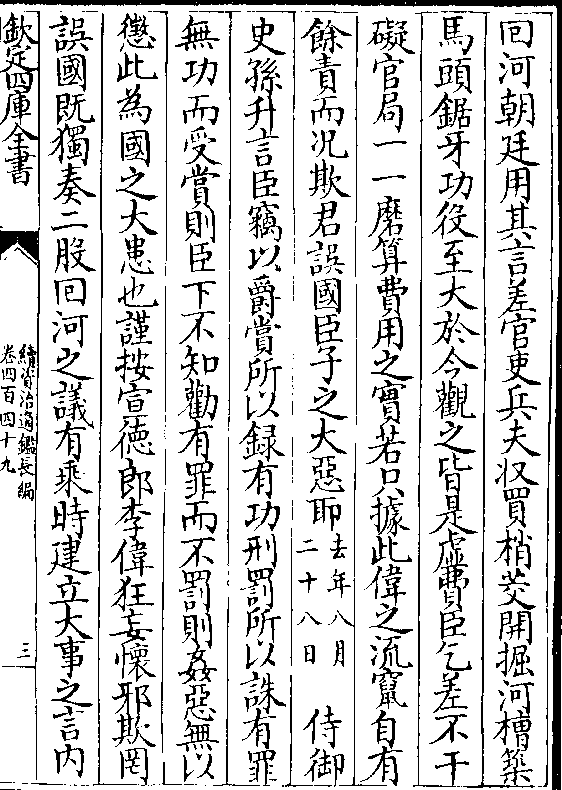 回河朝廷用其言差官吏兵夫収買梢茭開掘河槽築
馬頭鋸牙功役至大於今觀之皆是虛費臣乞差不干
礙官局一一磨算費用之實若只據此偉之流竄自有
餘責而况欺君誤國臣子之大惡耶去年八月二十八日 侍御
史孫升言臣竊以爵賞所以録有功刑罰所以誅有罪
無功而受賞則臣下不知勸有罪而不罰則姦惡無以
懲此為國之大患也謹按宣德郎李偉狂妄懷邪欺罔
誤國既獨奏二股回河之議有乘時建立大事之言内
欽定四庫全書
續資治通鑑長編
卷四百四十九
三